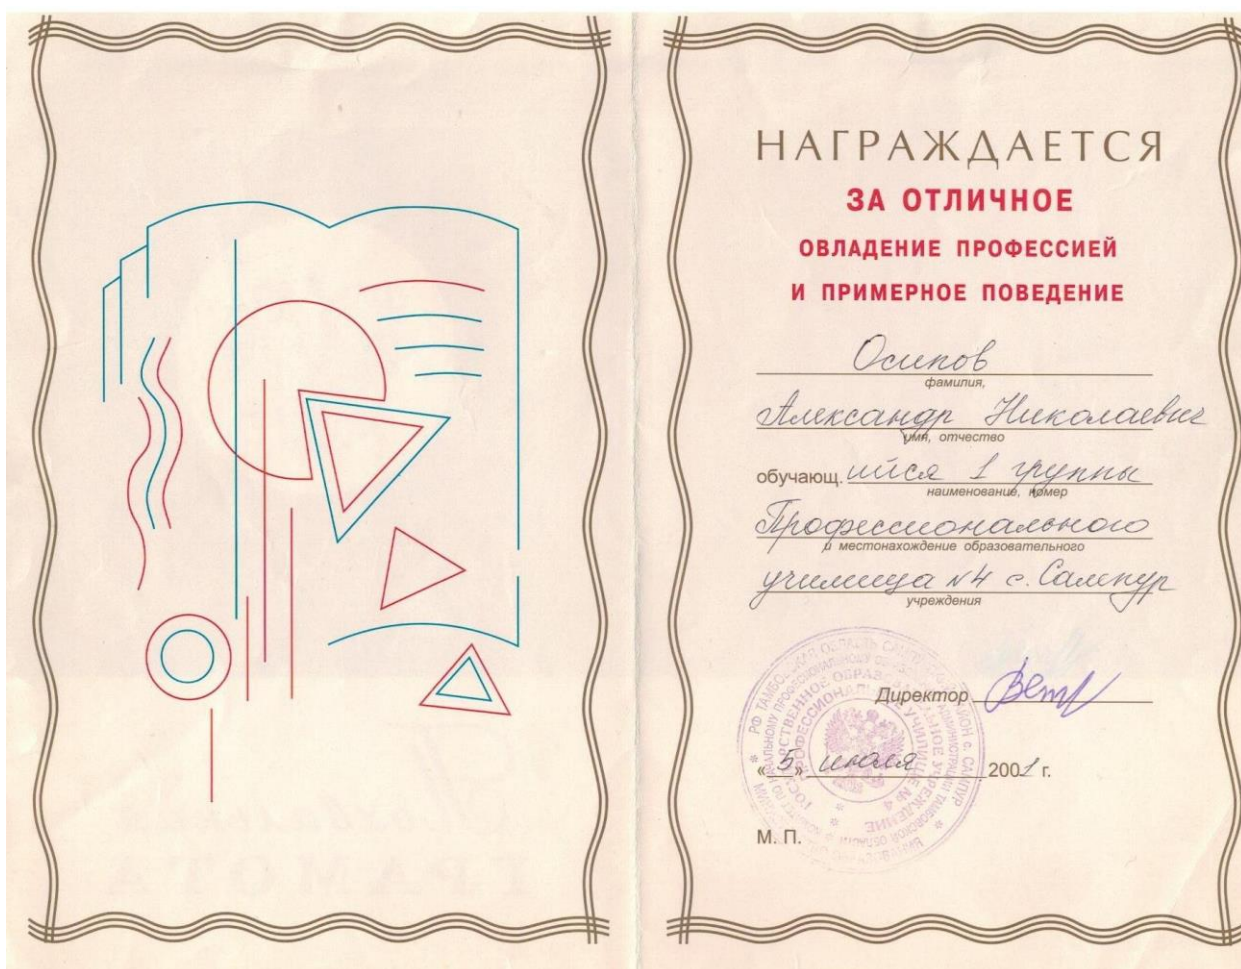 НАГРАЖДАЕТСЯ
ЗА ОТЛИЧНОЕ
ОВЛАДЕНИЕ ПРОФЕССИЕЙ
И ПРИМЕРНОЕ ПОВЕДЕНИЕ
Осипов
фамилия,
Александр Николаевич
имя, отчество
обучающ.ийся 1 группы
наименование, номер
Профессионального
и местонахождение образовательного
училища №4 с. Сампур
учреждения
Директор
«5» июля 2001 г.
М. П.
ГРАМОТА